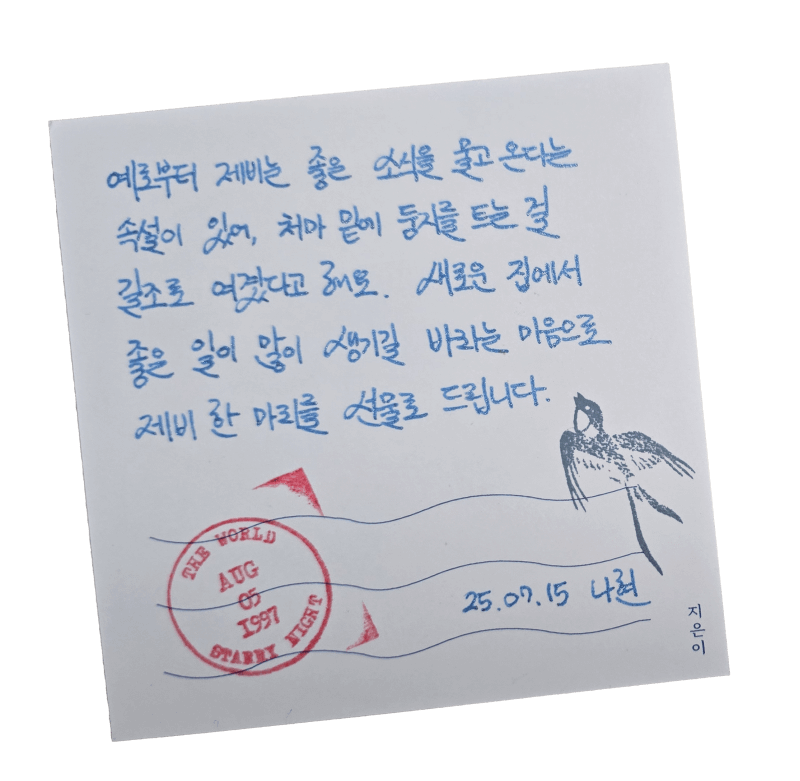 예로부터 제비는 좋은 소식을 물고 온다는
속설이 있어, 처마 밑에 둥지를 트는 걸
길조로 여겼다고 해요. 새로운 집에서
좋은 일이 많이 생기길 바라는 마음으로
제비 한 마리를 선물로 드립니다.
THE WORLD
AUG
05
1997
STARRY NIGHT
25.07.15 나현
지은이